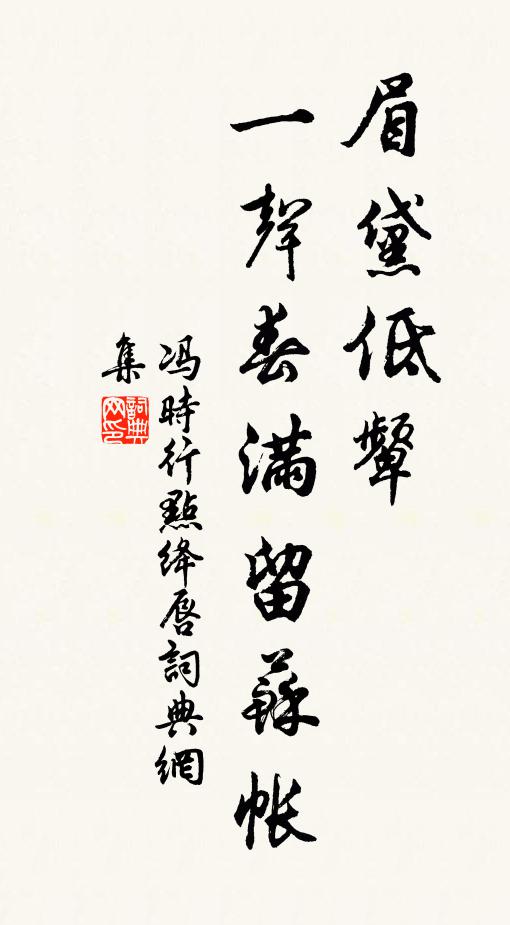 眉黛低顰
一聲春滿留蘇帳
冯時行點绛唇詞典網
集
詞典
网印